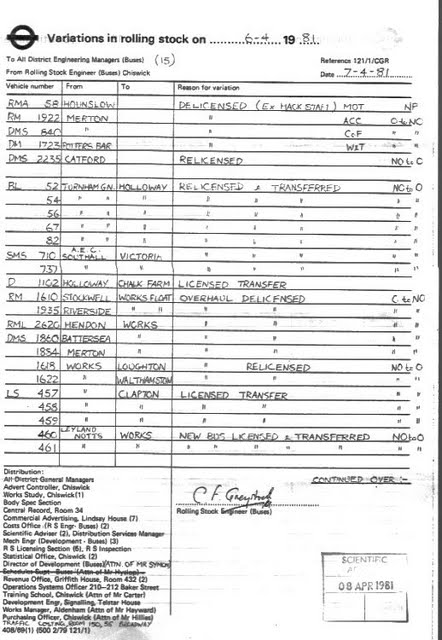 Variations in rolling stock on 6-4 1981
To All District Engineering Managers (Buses) (15) Reference 121/1/CGR
From Rolling Stock Engineer (Buses) Chiswick Date 7-4-81
Vehicle number From To Reason for variation
RMA 58 HOUNSLOW DELICENSED (EX HACK STAFF) MOT NP
RM 1922 MERTON " ACC O to NO
DMS 840 " " CoF " "
DM 1723 POTTERS BAR " W&T " "
DMS 2235 CATFORD RELICENSED NO to O
BL 52 TURNHAM GN. HOLLOWAY RELICENSED & TRANSFERRED NO to O
54 " " " " " " " "
56 " " " " " " " "
67 " " " " " " " "
82 " " " " " " " "
SMS 710 A.E.C. SOUTHALL VICTORIA " " " " "
737 " " " " " " "
D 1102 HOLLOWAY CHALK FARM LICENSED TRANSFER
RM 1610 STOCKWELL WORKS FLOAT OVERHAUL DELICENSED O to NO
1935 RIVERSIDE " " " " " "
RML 2620 HENDON WORKS " " " "
DMS 1860 BATTERSEA " " " " "
1854 MERTON " " " " "
1618 WORKS LOUGHTON " RELICENSED NO to O
1622 " WALTHAMSTOW " " " "
LS 457 " CLAPTON LICENSED TRANSFER
458 " " " "
459 " " " "
460 LEYLAND NOTTS WORKS NEW BUS LICENSED & TRANSFERRED NO to O
461 " " " " " " " " "
Distribution: CONTINUED OVER :-
All District General Managers
Advert Controller, Chiswick
Works Study, Chiswick (1)
Body Spec Section
Central Record, Room 34
Commercial Advertising, Lindsay House (7) Rolling Stock Engineer (Buses)
Costs Office (R S Engr- Buses) (2)
Scientific Adviser (2), Distribution Services Manager
Mech Engr (Development) (3)
R S Licensing Section (6), R S Inspection
Statistical Office, Chiswick (2)
Director of Development (Buses) (ATTN. OF MR SYMON) SCIENTIFIC
Schedules Supt - Buses (Attn of Mr Hyslop)
Revenue Office, Griffith House, Room 432 (2)
Operations Systems Officer 210-212 Baker Street 08 APR 1981
Training School, Chiswick (Attn of Mr Carter)
Development Engr, Signalling, Telstar House
Works Manager, Aldenham (Attn of Mr Hayward)
Purchasing Officer, Chiswick (Attn of Mr Hillies)
TRAFFIC COSTING, ROOM 150, 55 BROADWAY
408/89(1) (500 2/79 121/1)